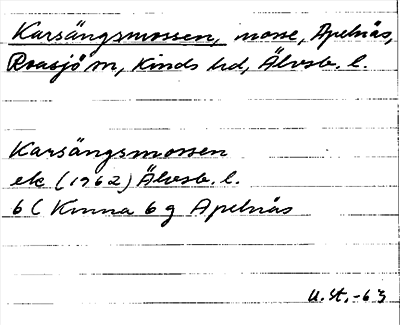 Karsängsmossen, mosse, Apelnäs,
Roasjö m, Kinds hd, Älvsb. l.
Karsängsmossen
ek (1962) Älvsb. l.
6C Kinna 6g Apelnäs
U.St.-63